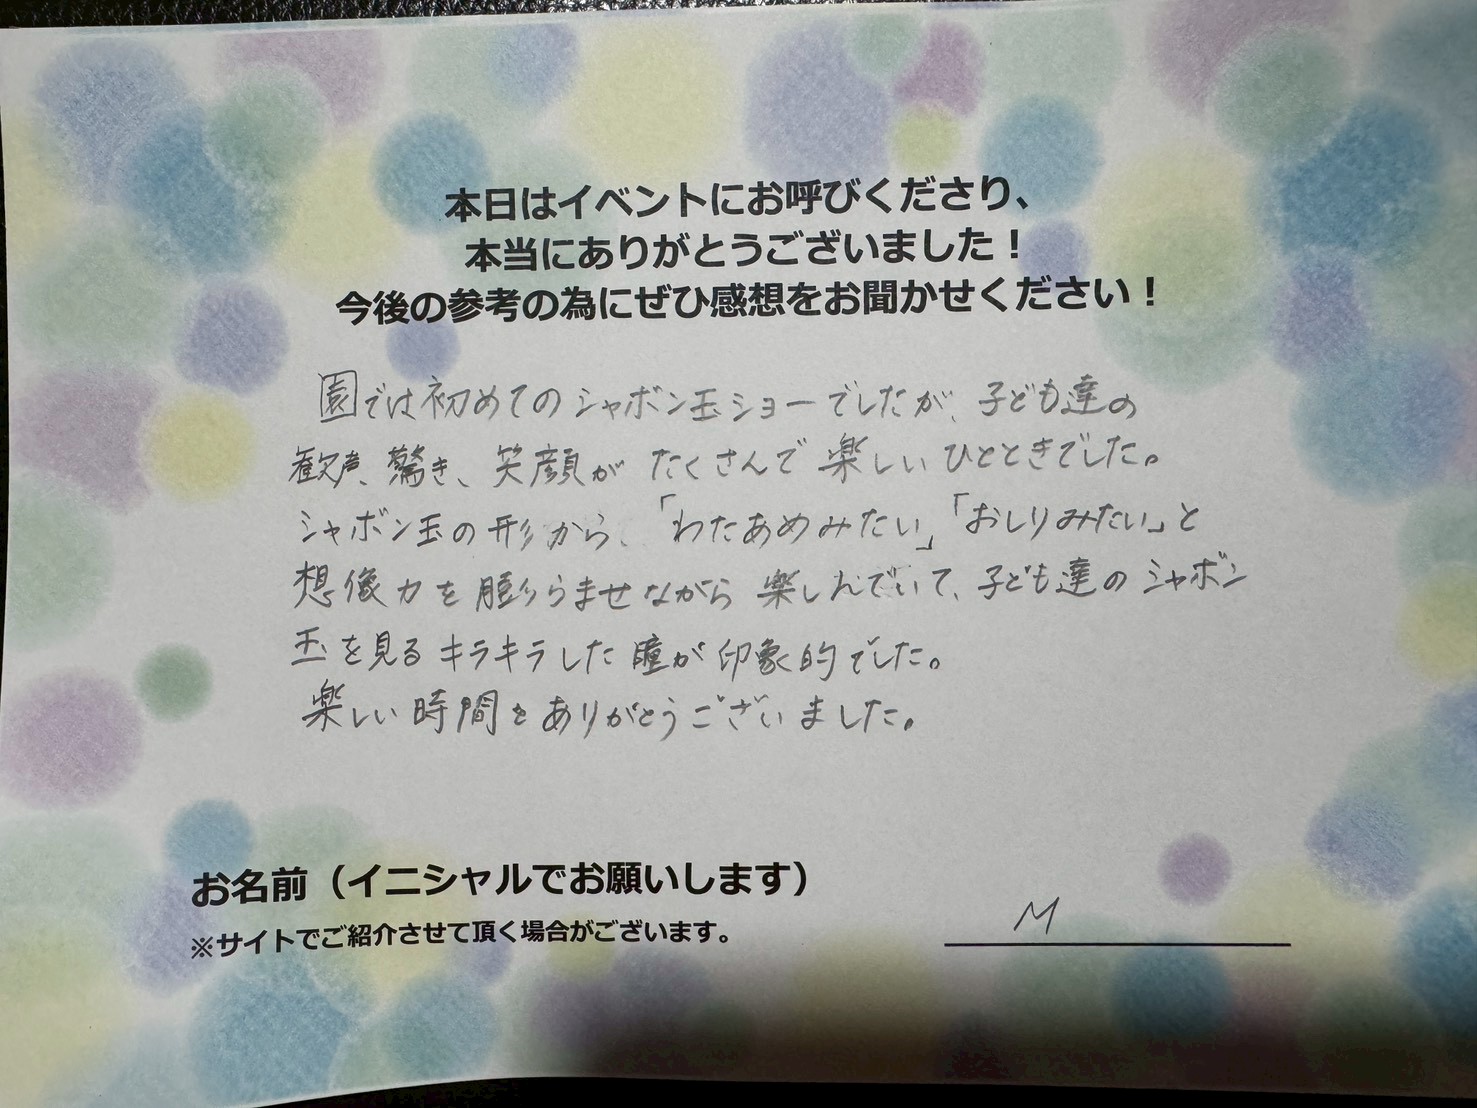 本日はイベントにお呼びくださり、
本当にありがとうございました！
今後の参考の為にぜひ感想をお聞かせください！
園では初めてのシャボン玉ショーでしたが、子ども達の
歓声、驚き、笑顔がたくさんで楽しいひとときでした。
シャボン玉の形から、「わたあめみたい」「おしりみたい」と
想像力を膨らませながら楽しんでいて、子ども達のシャボン
玉を見るキラキラした瞳が印象的でした。
楽しい時間をありがとうございました。
お名前（イニシャルでお願いします）
※サイトでご紹介させて頂く場合がございます。
M